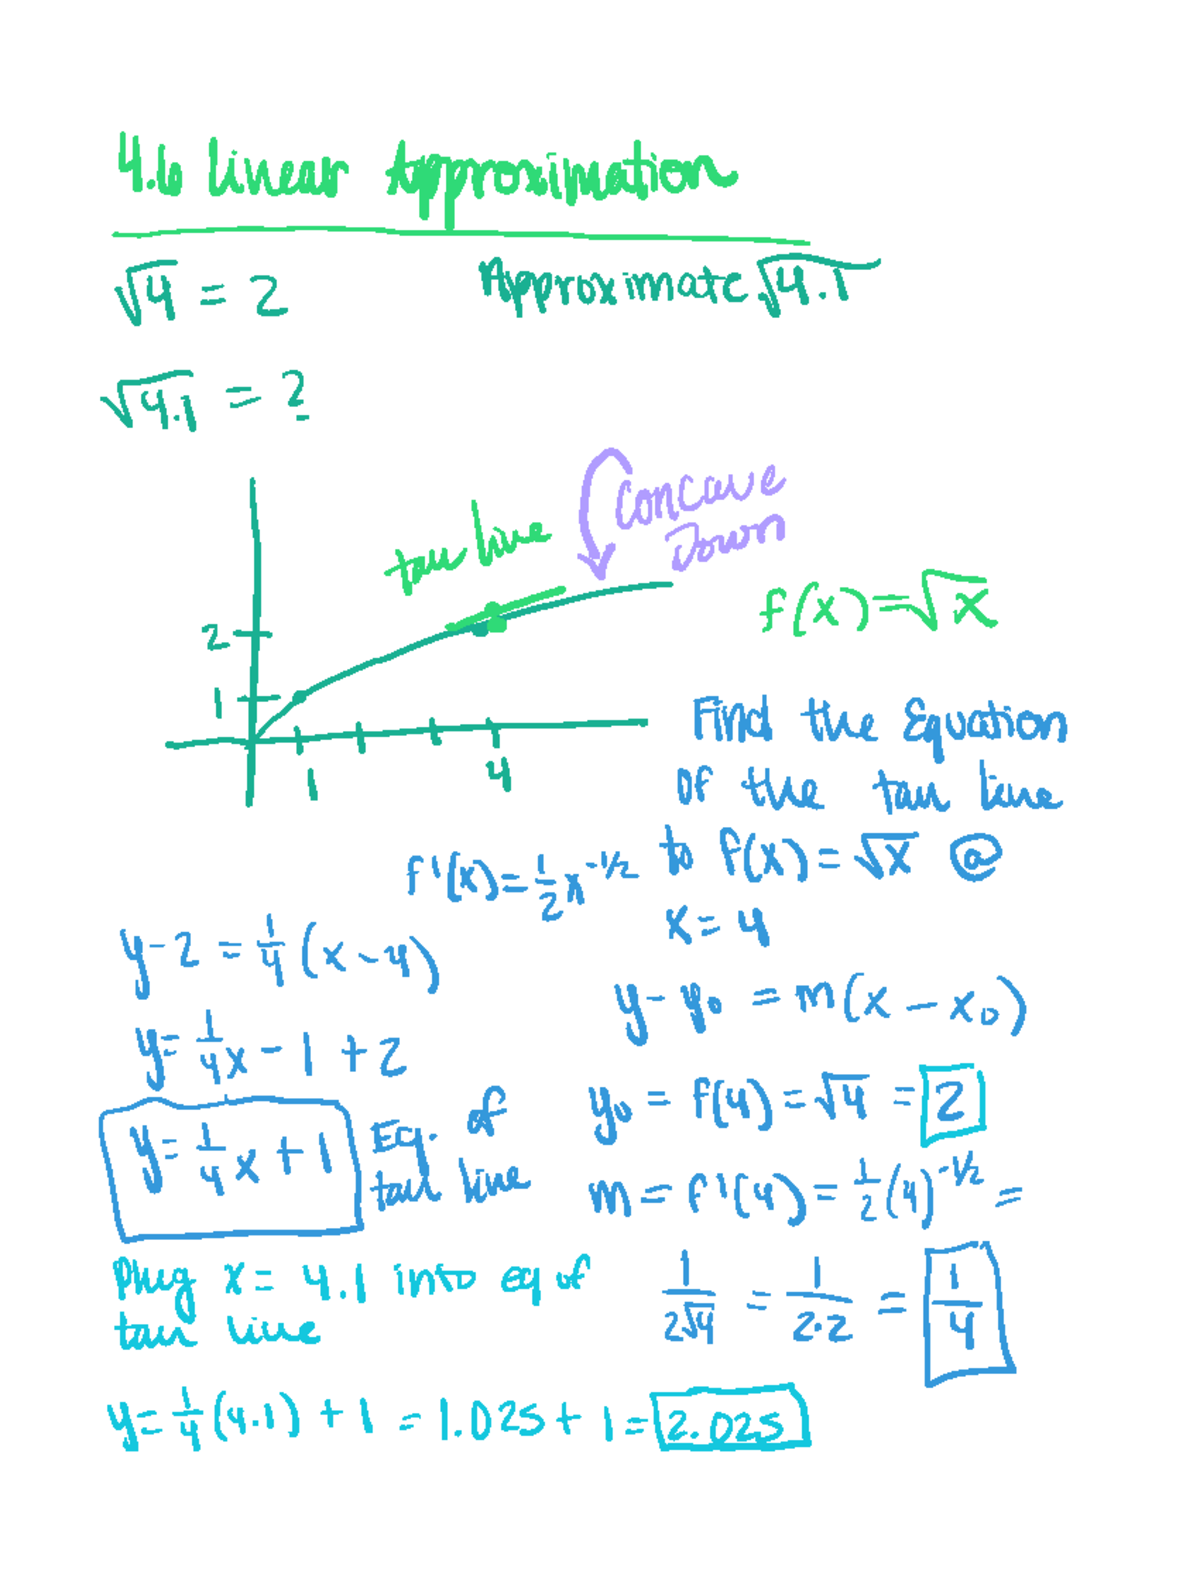 4.6 Linear Approximation
√4 = 2
Approximate √4.1
√4.1 = ?
Concave
Down
tan line
f(x) = √x
2
1
1
4
Find the Equation
of the tan line
to f(x) = √x @
x = 4
f'(x) = 1/2 x^-1/2
y - y₀ = m(x - x₀)
y₀ = f(4) = √4 = 2
m = f'(4) = 1/2 (4)^-1/2 =
1/(2√4) = 1/(2·2) = 1/4
y - 2 = 1/4 (x - 4)
y = 1/4 x - 1 + 2
y = 1/4 x + 1
Eq. of
tan line
Plug x = 4.1 into eq of
tan line
y = 1/4 (4.1) + 1 = 1.025 + 1 = 2.025